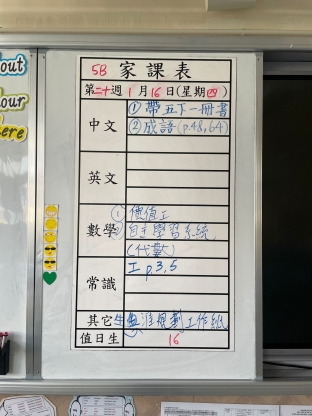 out
our
ere
5B 家課表
第二十週 1月16日(星期四)
中文
① 帶五下一冊書
② 成語(p.48,64)
英文
數學
① 價值工
② 自主學習系統
(代數)
常識
工 p3,5
其它 生涯規劃工作紙
值日生
16